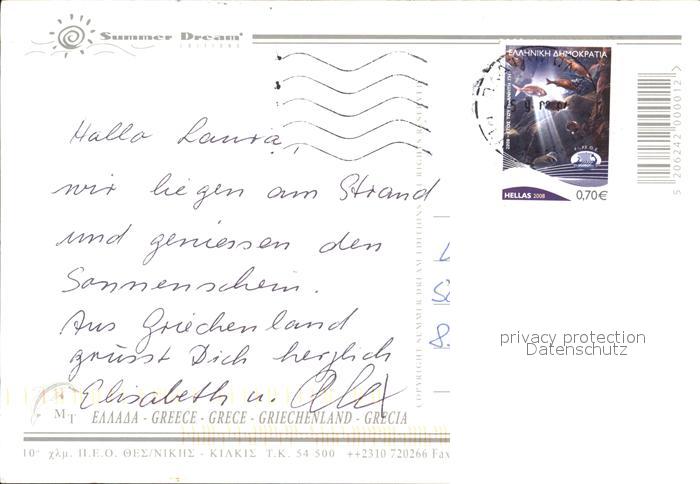 Summer Dream
EDITIONS
Hallo Laura,
wir liegen am Strand
und geniessen den
Sonnenschein.
Aus Griechenland
grüsst Dich herzlich
Elisabeth u.
MT ΕΛΛΑΔΑ - GREECE - GRECE - GRIECHENLAND - GRECIA
10ο χλμ. Π.Ε.Ο. ΘΕΣ/ΝΙΚΗΣ - ΚΙΛΚΙΣ Τ.Κ. 54 500 ++2310 720266 Fax
COPYRIGHT SUMMER DREAM EDITIONS ALL RIGHTS RESERVED
ΕΛΛΗΝΙΚΗ ΔΗΜΟΚΡΑΤΙΑ
HELLAS 2008 0,70€
5 206242 000012
privacy protection
Datenschutz